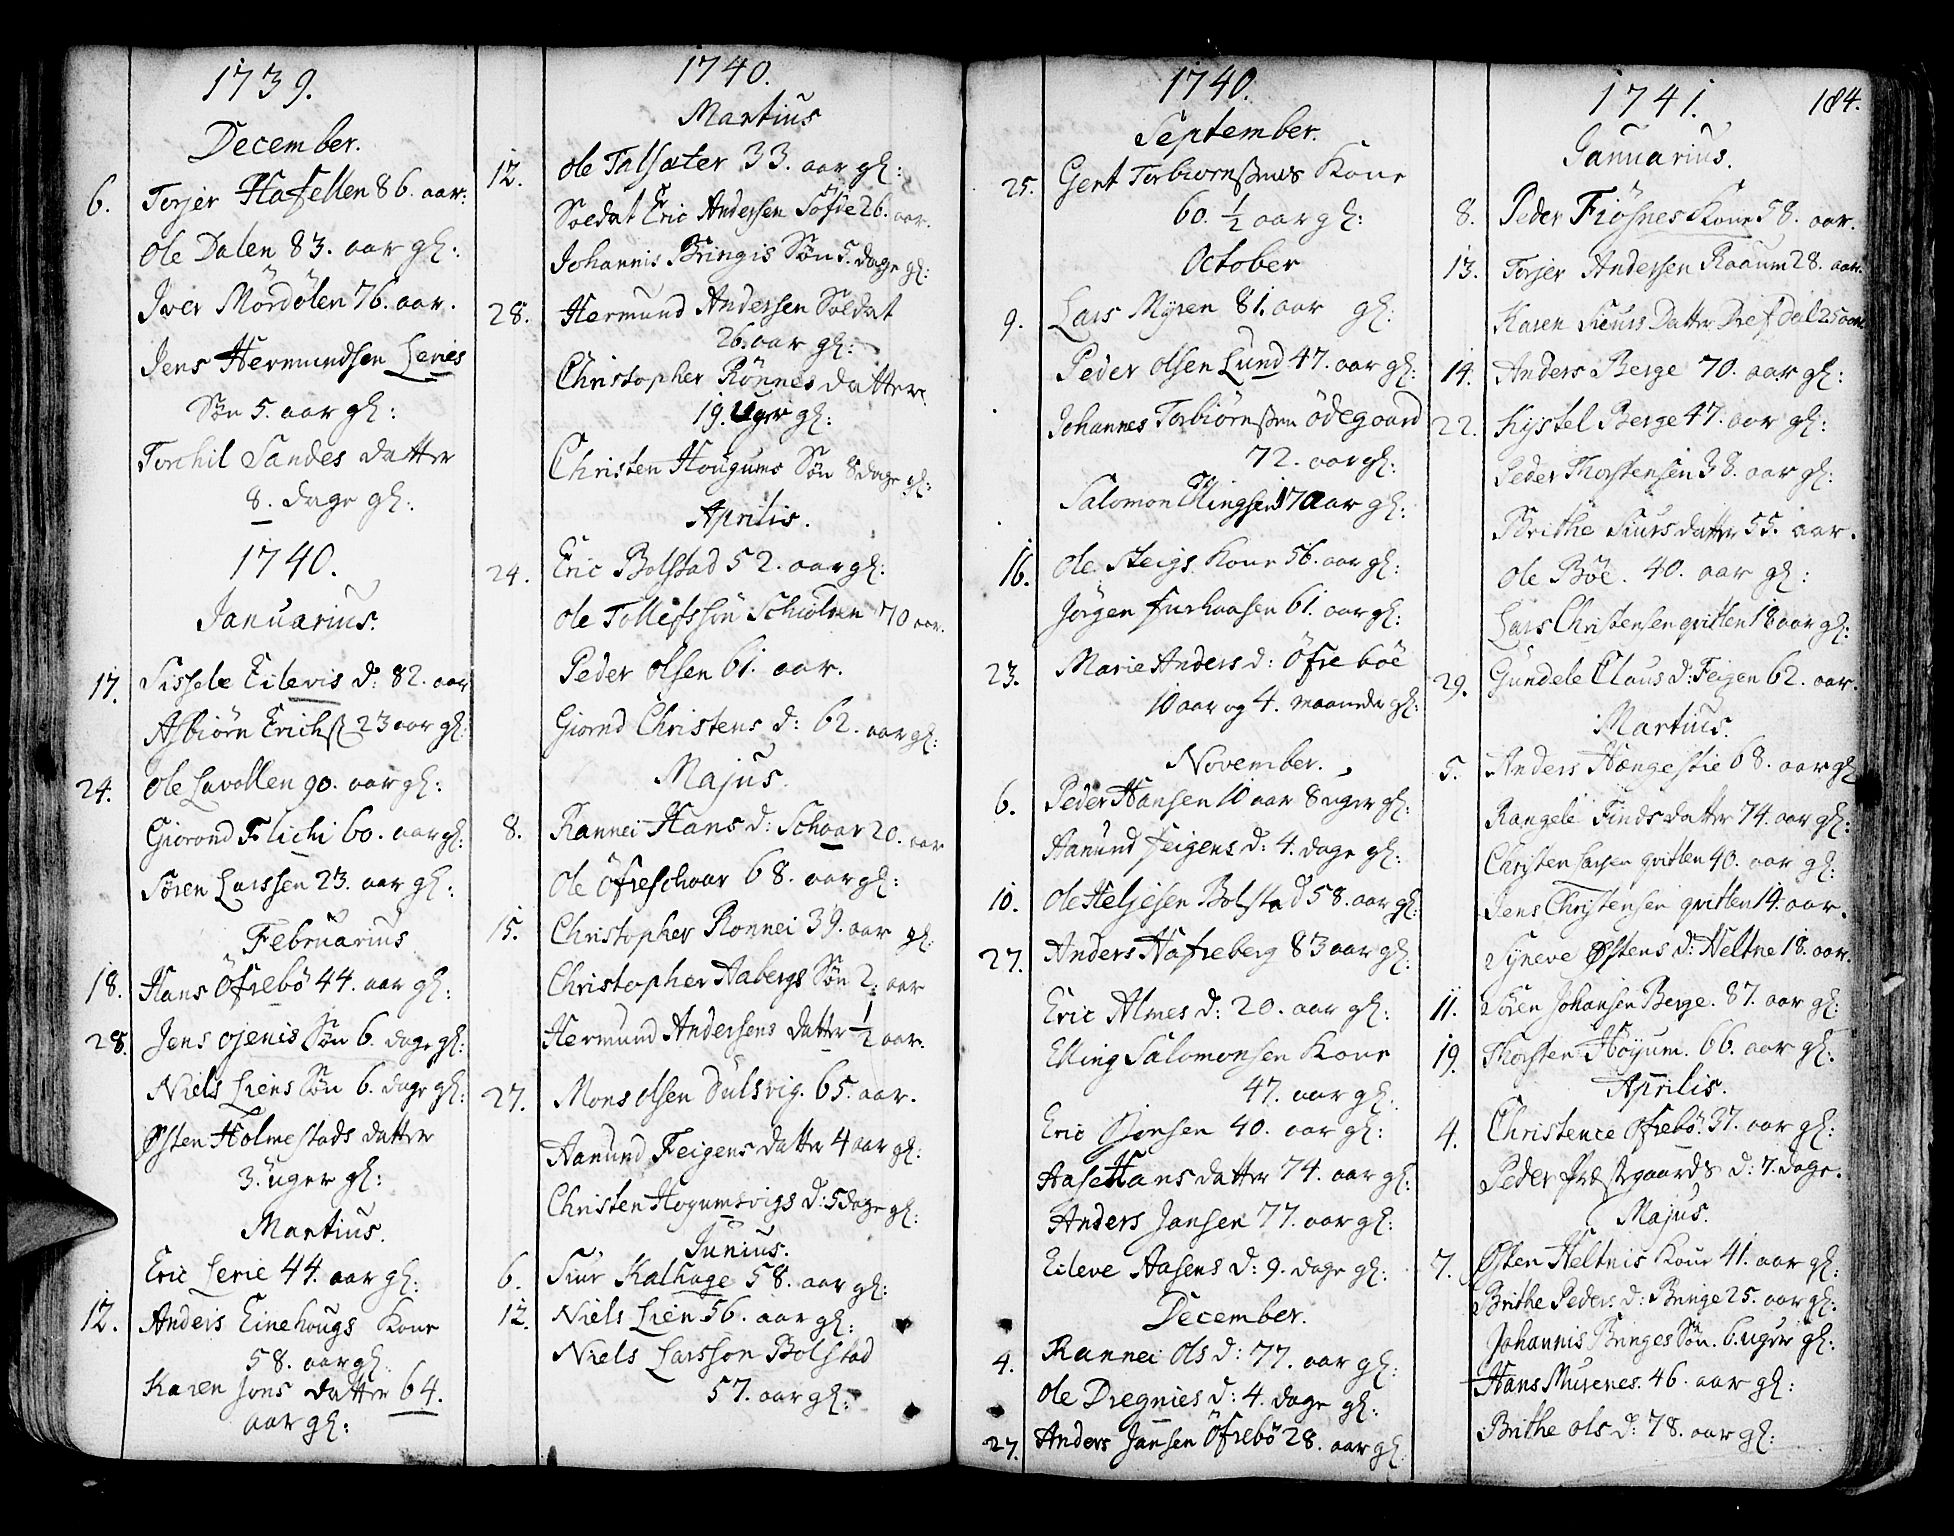 1739.
December.
6. Torjer Hafellen 86. aar.
Ole Dalen 83. aar gl:
Iver Mördölen 76. aar.
Jens Hermundsen Leries
Søn 5. aar gl:
Torchil Sandes datter
8. dage gl:
1740.
Januarius.
17. Sissele Eilevis d: 82. aar
Asbiörn Erichs 23 aar gl:
24. Ole Lavollen 90. aar gl:
Giorond Flichi 60. aar gl:
Søren Larssen 23. aar gl:
Februarius
18. Hans Öfrebø 44. aar gl:
28. Jens Ojenis Søn 6. dage gl:
Niels Liens Søn 6. dage gl:
Østen Holmestads datter
3. uger gl:
Martius.
Eric Lerie 44. aar gl:
12. Anders Einehougs Kone
58. aar gl:
Karen Jons datter 64.
aar gl:
1740.
Martius
12. Ole Talsæter 33. aar gl:
Soldat Eric Andersen Sofde 26. aar.
Johannis Bringis Søn 5. dage gl:
28. Hermund Andersen Soldat
26. aar gl:
Christopher Rönnes datter
19. Uger gl:
Christen Hougums Søn 8 dage gl:
Aprilis.
24. Eric Bolstad 52. aar gl:
Ole Tollefssön Schiolden 70 aar.
Peder Olsen 61. aar.
Giornd Christens d: 62. aar gl:
Majus.
8. Rannei Hans d: Schoar 20. aar
Ole Öfreschoar 68. aar gl:
15. Christopher Ronnei 39. aar gl:
Christopher Aabergs Søn 2. aar
Hermund Andersens datter ½ aar.
27. Mons Olsen Dulsvig. 65. aar.
Aamund Feigens datter 4 aar gl:
Christen Hoyumsvigs d: 5 dage gl:
Junius.
6. Siur Kalhage 58. aar gl:
12. Niels Lien 56. aar gl:
Niels Larsson Bolstad
57. aar gl:
1740.
September.
25. Gert Torbiornsens Kone
60. ½ aar gl:
October
9. Lars Myren 81. aar gl:
Peder Olsen Lund 47. aar gl:
Johannes Torbiörnsen Ödegaard
72. aar gl:
Salomon 70 aar gl:
16. Ole Steigs Kone 56. aar gl:
Jörgen Furhaasen 61. aar gl:
23. Marie Anders d: Öfreböe
10 aar og 4. maaneder gl:
November.
6. Peder Hansen 10 aar 8 uger gl:
Aamund Feigens d: 4. dage gl:
10. Ole Heljesen Bolstad 58. aar gl:
27. Anders Hafreberg 83 aar gl:
Eric Almes d: 20. aar gl:
Elling Salomonsen Kone
47. aar gl:
Eric Ojonsen 40. aar gl:
Aase Hans datter 74. aar gl:
Anders Jansen 77. aar gl:
Eileve Aasens d: 9. dage gl:
December.
4. Rannei Ols d: 77. aar gl:
Ole Dregnies d: 4. dage gl:
27. Anders Jansen Öfrebö 28. aar gl:
1741. 184.
Januarius.
8. Peder Fiösnes Kone 58. aar.
13. Torjer Andersen Raaum 28. aar.
Karen Siurs Datter Drefdal 25 aar
14. Anders Berge 70. aar gl:
22. Kystel Berge 47. aar gl:
Peder Thorstensen 38. aar gl:
Brithe Siurs datter 55. aar.
Ole Böe. 40. aar gl:
Lars Christensen qvitten 18 aar gl:
29. Gundele Claus d: Feigen 62. aar.
Martius.
5. Anders Hængestie 68. aar gl:
Rangele Finds datter 74. aar gl:
Christen Larsen qvitten 40. aar gl:
Jens Christensen qvitten 14. aar.
Syneve Østens d: Heltne 18. aar.
11. Sören Johansen Berge. 87. aar gl:
19. Thorsten Höyum. 66. aar gl:
Aprilis.
4. Christence Öfrebö 37. aar gl:
Peder Præstegaards d: 7. dage.
Majus.
7. Østen Heltnis Kone 41. aar gl:
Brithe Peders d: Bringe 25. aar gl:
Johannis Bringes Søn. 6. uger gl:
Hans Murenes. 46. aar gl:
Brithe Ols d: 78. aar gl: